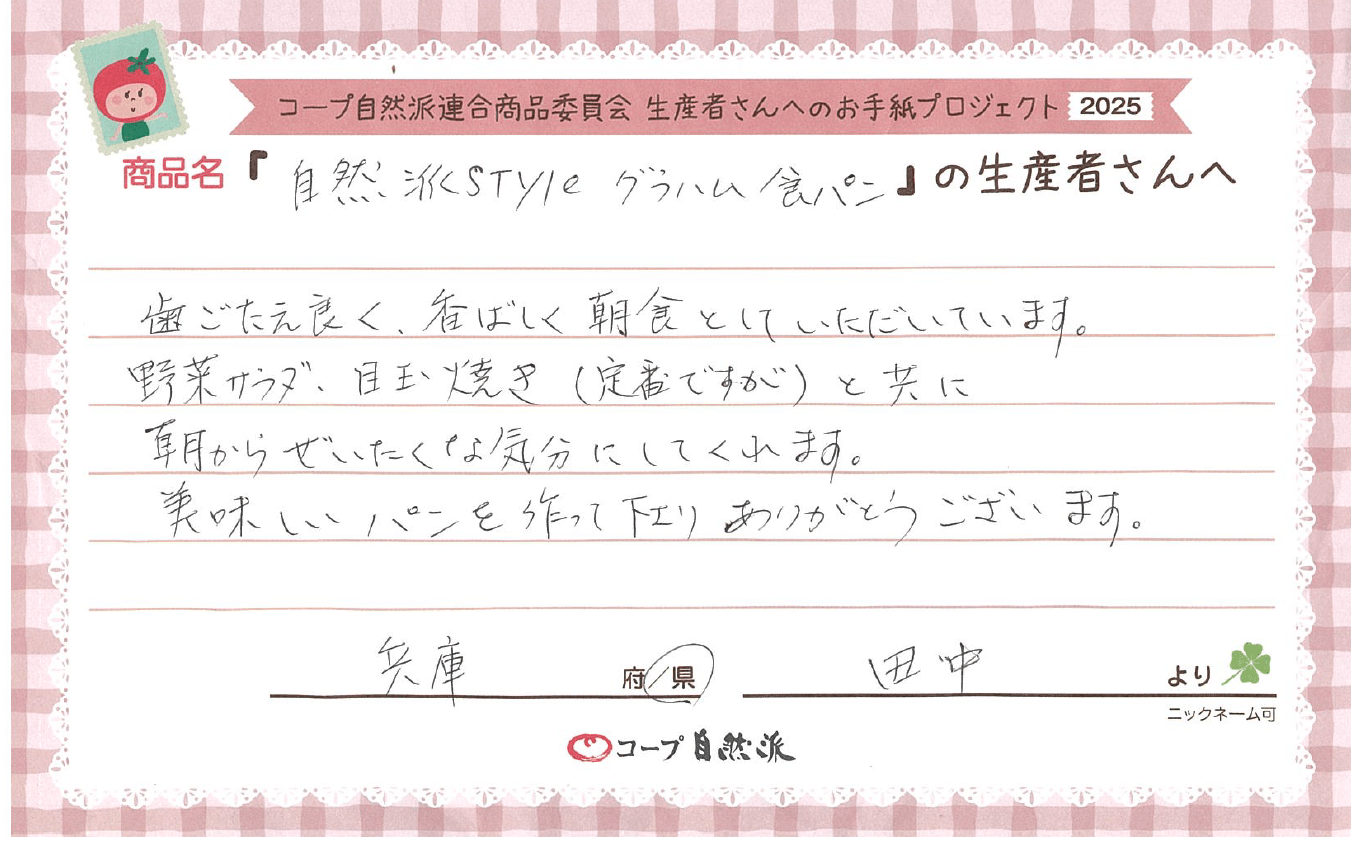 コープ自然派連合商品委員会 生産者さんへのお手紙プロジェクト 2025
商品名『自然派STyle グラハム食パン』の生産者さんへ
歯ごたえ良く、香ばしく朝食としていただいています。
野菜サラダ、目玉焼き(定番ですが)と共に
朝からぜいたくな気分にしてくれます。
美味しいパンを作って下さりありがとうございます。
兵庫 府/県 田中 より
ニックネーム可
コープ自然派